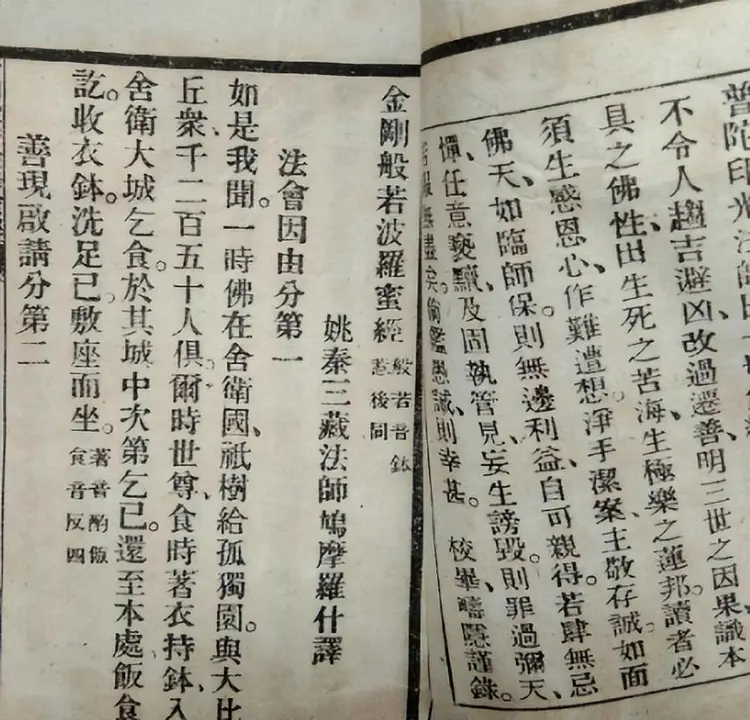 普陀印光法師
不令人趨吉避凶、改過遷善、明三世之因果、識本
具之佛性、出生死之苦海、生極樂之蓮邦。讀者必
須生感恩心、作難遭想。淨手潔案、主敬存誠、如面
佛天、如臨師保。則無邊利益、自可親得。若肆無忌
憚、任意褻瀆、及固執管見、妄生謗毀。則罪過彌天、
苦報無盡矣。鑑愚誠、則幸甚。 校畢、疇隱謹錄。
金剛般若波羅蜜經 般若音鉢惹後同
姚秦三藏法師鳩摩羅什譯
法會因由分第一
如是我聞。一時佛在舍衛國、祇樹給孤獨園。與大比
丘眾、千二百五十人俱。爾時世尊、食時著衣持鉢、入
舍衛大城乞食。於其城中次第乞已。還至本處飯食
訖。收衣鉢。洗足已。敷座而坐。著音酌飯食音反四
善現啟請分第二